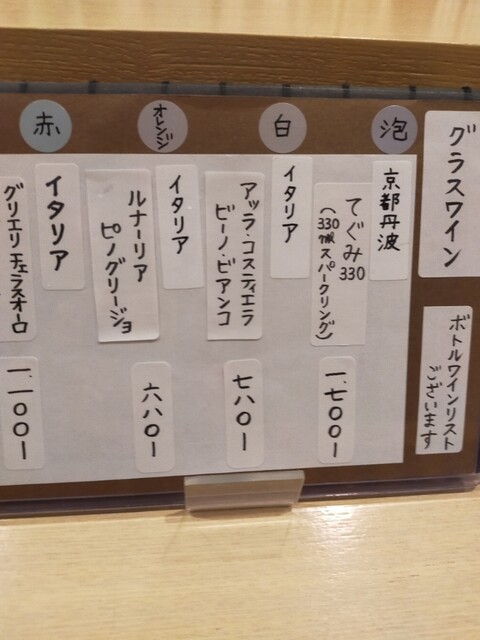 グラスワイン
ボトルワインリスト
ございます
泡
京都丹波
てぐみ330
(330㎖スパークリング)
一、七〇〇ー
白
イタリア
アッラ・コスティエラ
ビーノ・ビアンコ
七八〇ー
オレンジ
イタリア
ルナーリア
ピノグリージョ
六八〇ー
赤
イタリア
グリエリ チェラスオーロ
一、一〇〇ー